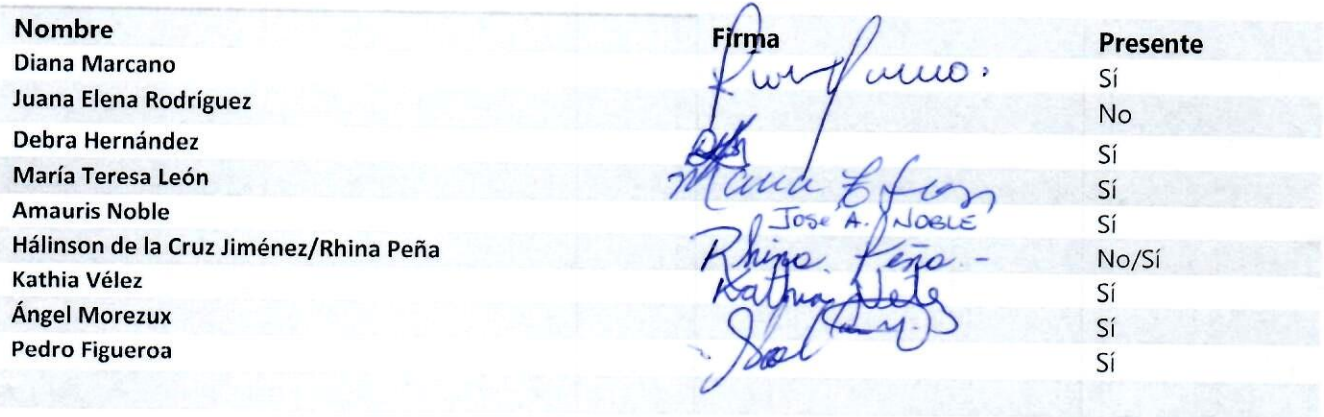 Nombre Firma Presente
Diana Marcano Sí
Juana Elena Rodríguez No
Debra Hernández Sí
María Teresa León Sí
Amauris Noble Jose A. NOBLE Sí
Hálinson de la Cruz Jiménez/Rhina Peña Rhina Peña - No/Sí
Kathia Vélez Kathia Sí
Ángel Morezux Sí
Pedro Figueroa Sí